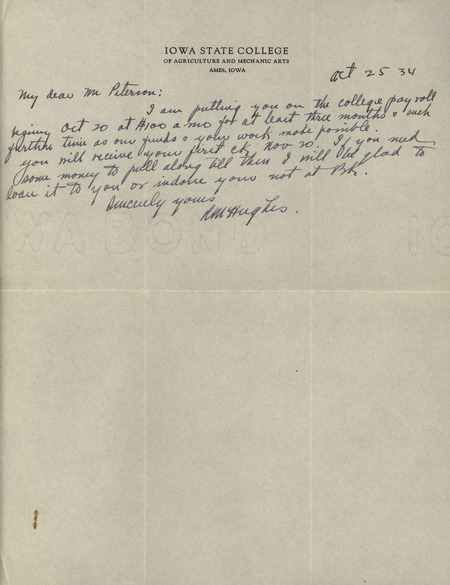 IOWA STATE COLLEGE
OF AGRICULTURE AND MECHANIC ARTS
AMES, IOWA
Oct 25 34
My dear Mr Peterson:
I am putting you on the college payroll
beginning Oct 20 at $100 a mo for at least three months & such
further time as our funds & your work make possible.
You will receive your first ck Nov 20. If you need
some money to pull along till then I will be glad to
loan it to you or indorse your not at Bk.
Sincerely yours
RMHughes.
WA BOND IO